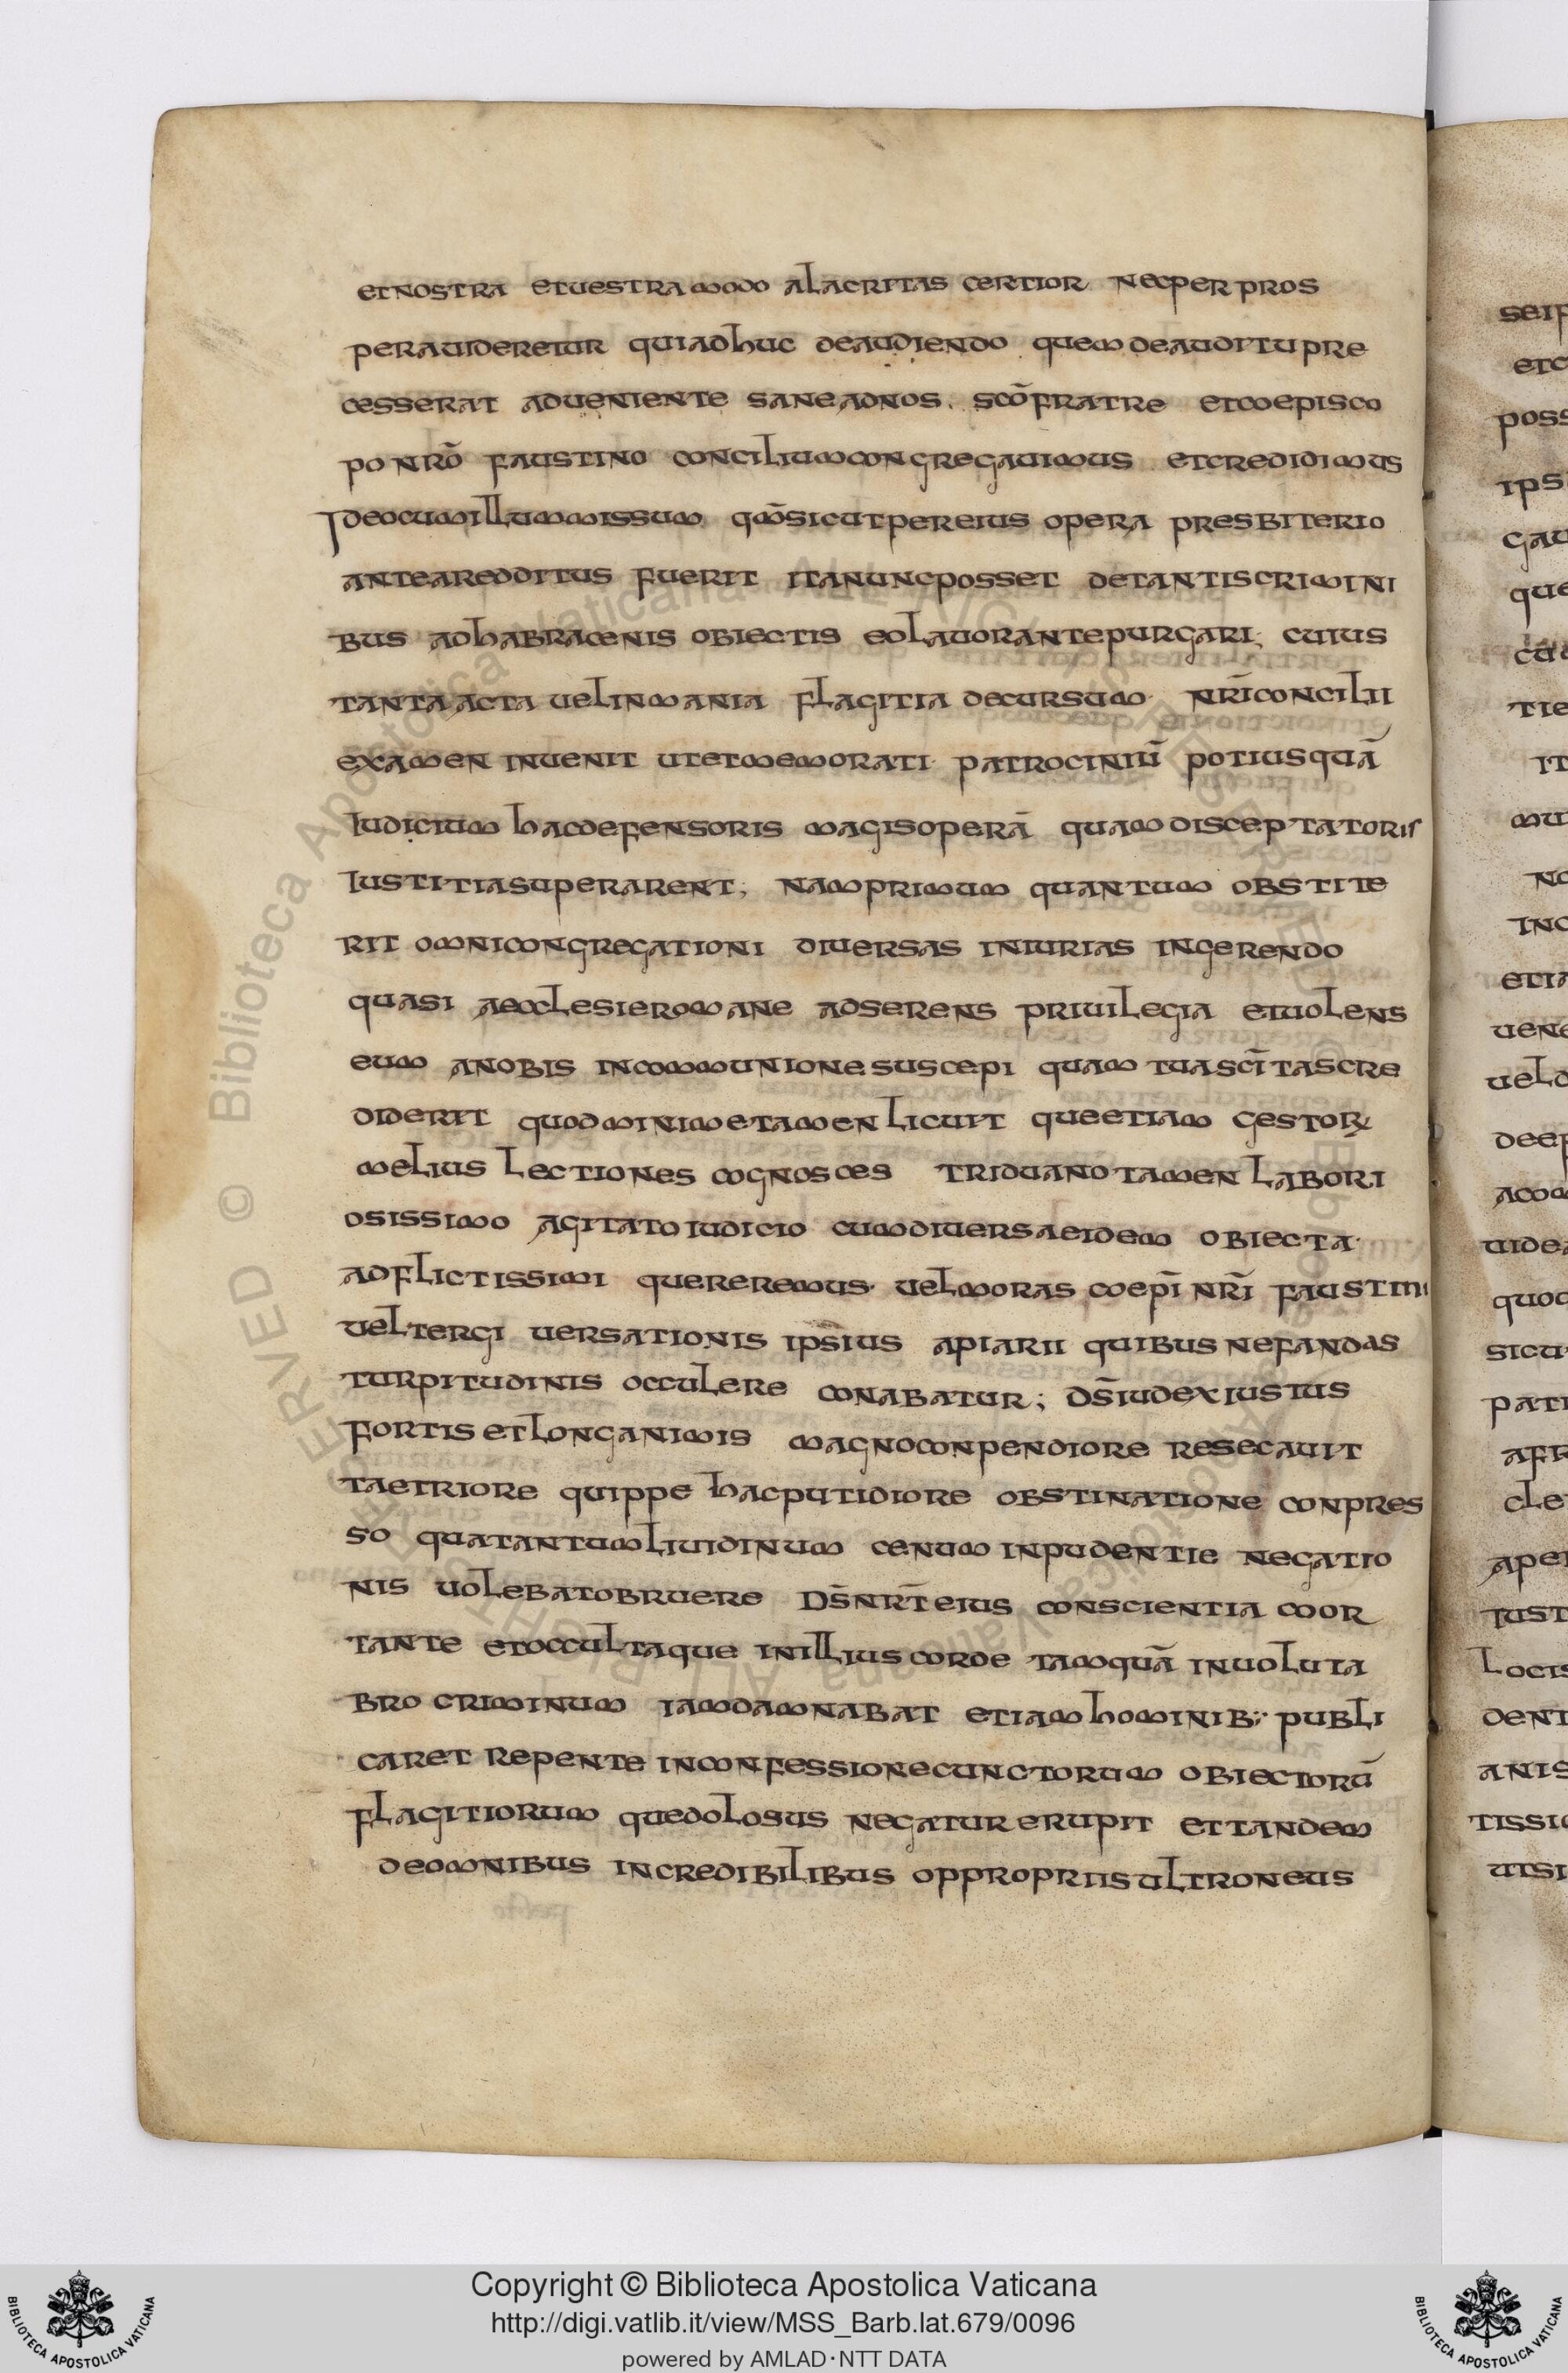 et nostra et uestra modo alacritas certior nec per pros
pera uideretur qui adhuc de audiendo quem de auditu pre
cesserat adueniente sane ad nos. scō fratre et coepisco
po nrō faustino concilium congregauimus et credidimus
Ideo cum illum missum qm̄ sicut per eius opera presbiterio
antea redditus fuerit ita nunc posset de tantis crimini
bus ad habracenis obiectis eo lauorante purgari; cuius
tanta acta uel inmania flagitia decursum. nr̄i concilii
examen inuenit ut et memorati patrociniū potius quā
Iudicium hac defensoris magis operā quam disceptatoris
Iustitia superarent; nam primum quantum obstite
rit omni congregationi diuersas iniurias ingerendo
quasi aecclesie romane adserens priuilegia et uolens
eum a nobis in communione suscepi quam tua scītas cre
diderit quod minime tamen licuit que etiam gestoꝝ
melius lectiones cognosces triduano tamen labori
osissimo agitato iudicio cum diuersa eidem obiecta
adflictissimi quereremus. uel moras coepī nrī faustini
uel tergi uersationis ipsius apiarii quibus nefandas
turpitudinis occulere conabatur; ds̄ iudex iustus
fortis et longanimis magno conpendiore resecauit
taetriore quippe hac putidiore obstinatione conpres
so qua tantum liuidinum cenum inpudentie negatio
nis uolebat obruere ds̄ nr̄t eius conscientia coor
tante et occultaque in illius corde tamquā inuoluta
bro criminum iam damnabat etiam hominib; publi
caret repente in confessione cunctorum obiectorū
flagitiorum que dolosus negatur erupit et tandem
de omnibus incredibilibus oppropriis ultroneus
seip
etc
poss
ips
gau
que
cū
tie
it
mu
no
inc
etia
uene
uel
deep
acom
uidea
quod
sicu
pati
afr
cle
aper
iust
locis
dent
anis
tissi
uisi
Copyright © Biblioteca Apostolica Vaticana
http://digi.vatlib.it/view/MSS_Barb.lat.679/0096
powered by AMLAD·NTT DATA
BIBLIOTECA APOSTOLICA VATICANA
BIBLIOTECA APOSTOLICA VATICANA